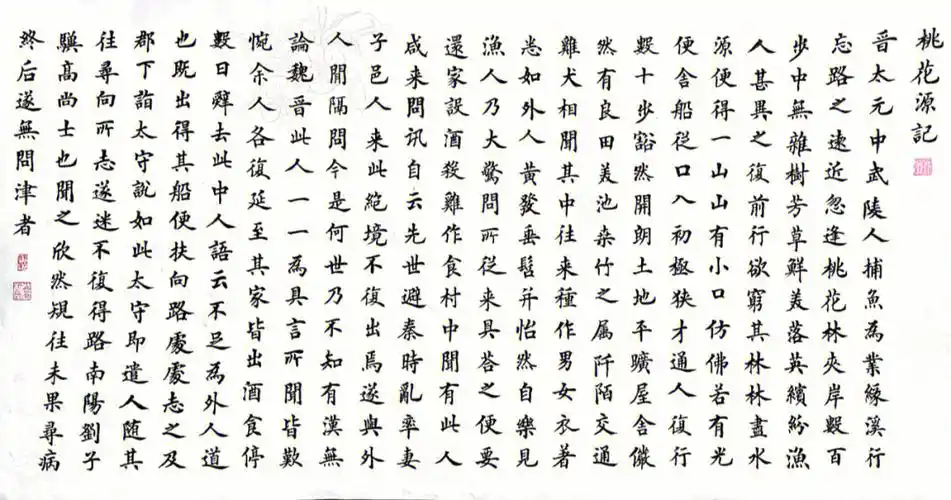 桃花源記
晉太元中武陵人捕魚為業緣溪行
忘路之遠近忽逢桃花林夾岸數百
步中無雜樹芳草鮮美落英繽紛漁
人甚異之復前行欲窮其林林盡水
源便得一山山有小口仿佛若有光
便舍船從口入初極狹才通人復行
數十步豁然開朗土地平曠屋舍儼
然有良田美池桑竹之属阡陌交通
雞犬相聞其中往来種作男女衣著
悉如外人黄發垂髫并怡然自樂見
漁人乃大驚問所從来具荅之便要
還家設酒殺雞作食村中聞有此人
咸来問訊自云先世避秦時亂率妻
子邑人来此絕境不復出焉遂與外
人間隔問今是何世乃不知有漢無
論魏晉此人一一為具言所聞皆歎
惋余人各復延至其家皆出酒食停
數日辭去此中人語云不足為外人道
也既出得其船便扶向路處處志之及
郡下詣太守說如此太守即遣人随其
往尋向所志遂迷不復得路南陽劉子
驥高尚士也聞之欣然規往未果尋病
終后遂無問津者